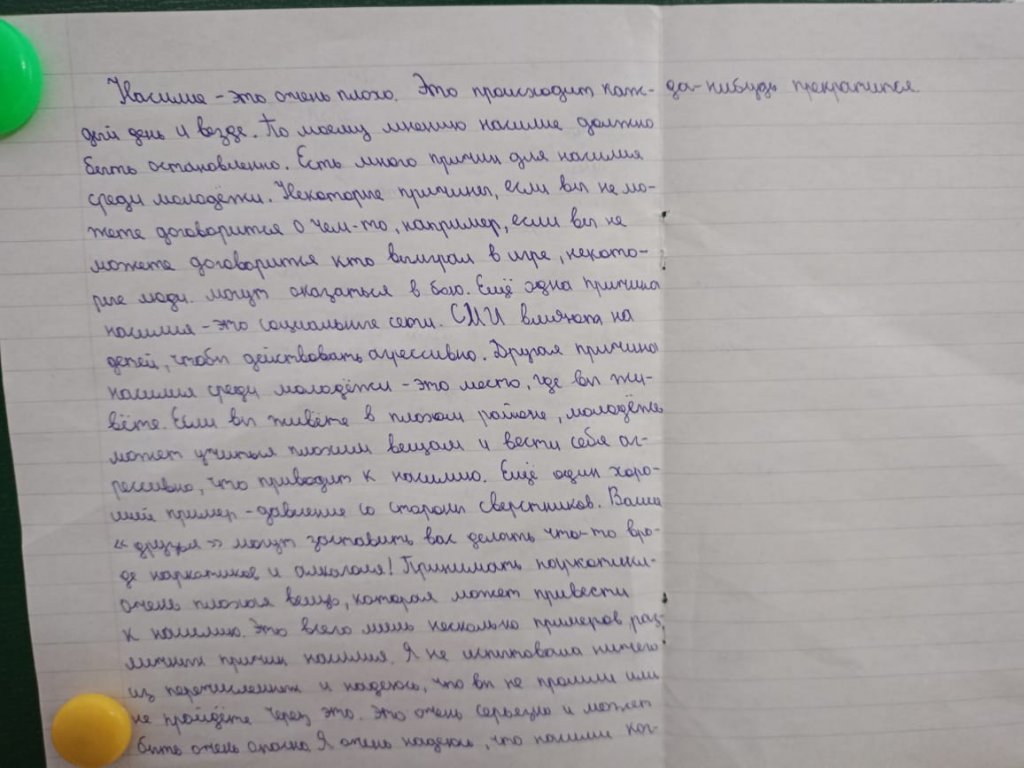 Насилие - это очень плохо. Это происходит каж-
дый день и везде. По моему мнению насилие должно
быть остановленно. Есть много причин для насилия
среди молодёжи. Некоторые причины, если вы не мо-
жете договорится о чем-то, например, если вы не
можете договорится кто выиграл в игре, некото-
рые люди могут оказаться в бою. Ещё одна причина
насилия - это социальные сети. СМИ влияют на
детей, чтобы действовать агрессивно. Другая причина
насилия среди молодёжи - это место, где вы жи-
вёте. Если вы живёте в плохом районе, молодёжь
может учиться плохим вещам и вести себя аг-
рессивно, что приводит к насилию. Ещё один хоро-
ший пример - давление со стороны сверстников. Ваши
«друзья» могут заставить вас делать что-то вро-
де наркотиков и алкоголя! Принимать наркотики-
очень плохая вещь, которая может привести
к насилию. Это всего лишь несколько примеров раз
личных причин насилия. Я не испытовала ничего
из перечисленных и надеюсь, что вы не прошли или
не пройдёте через это. Это очень серьезно и может
быть очень опасно. Я очень надеюсь, что насилие ког-
да-нибудь прекратится.